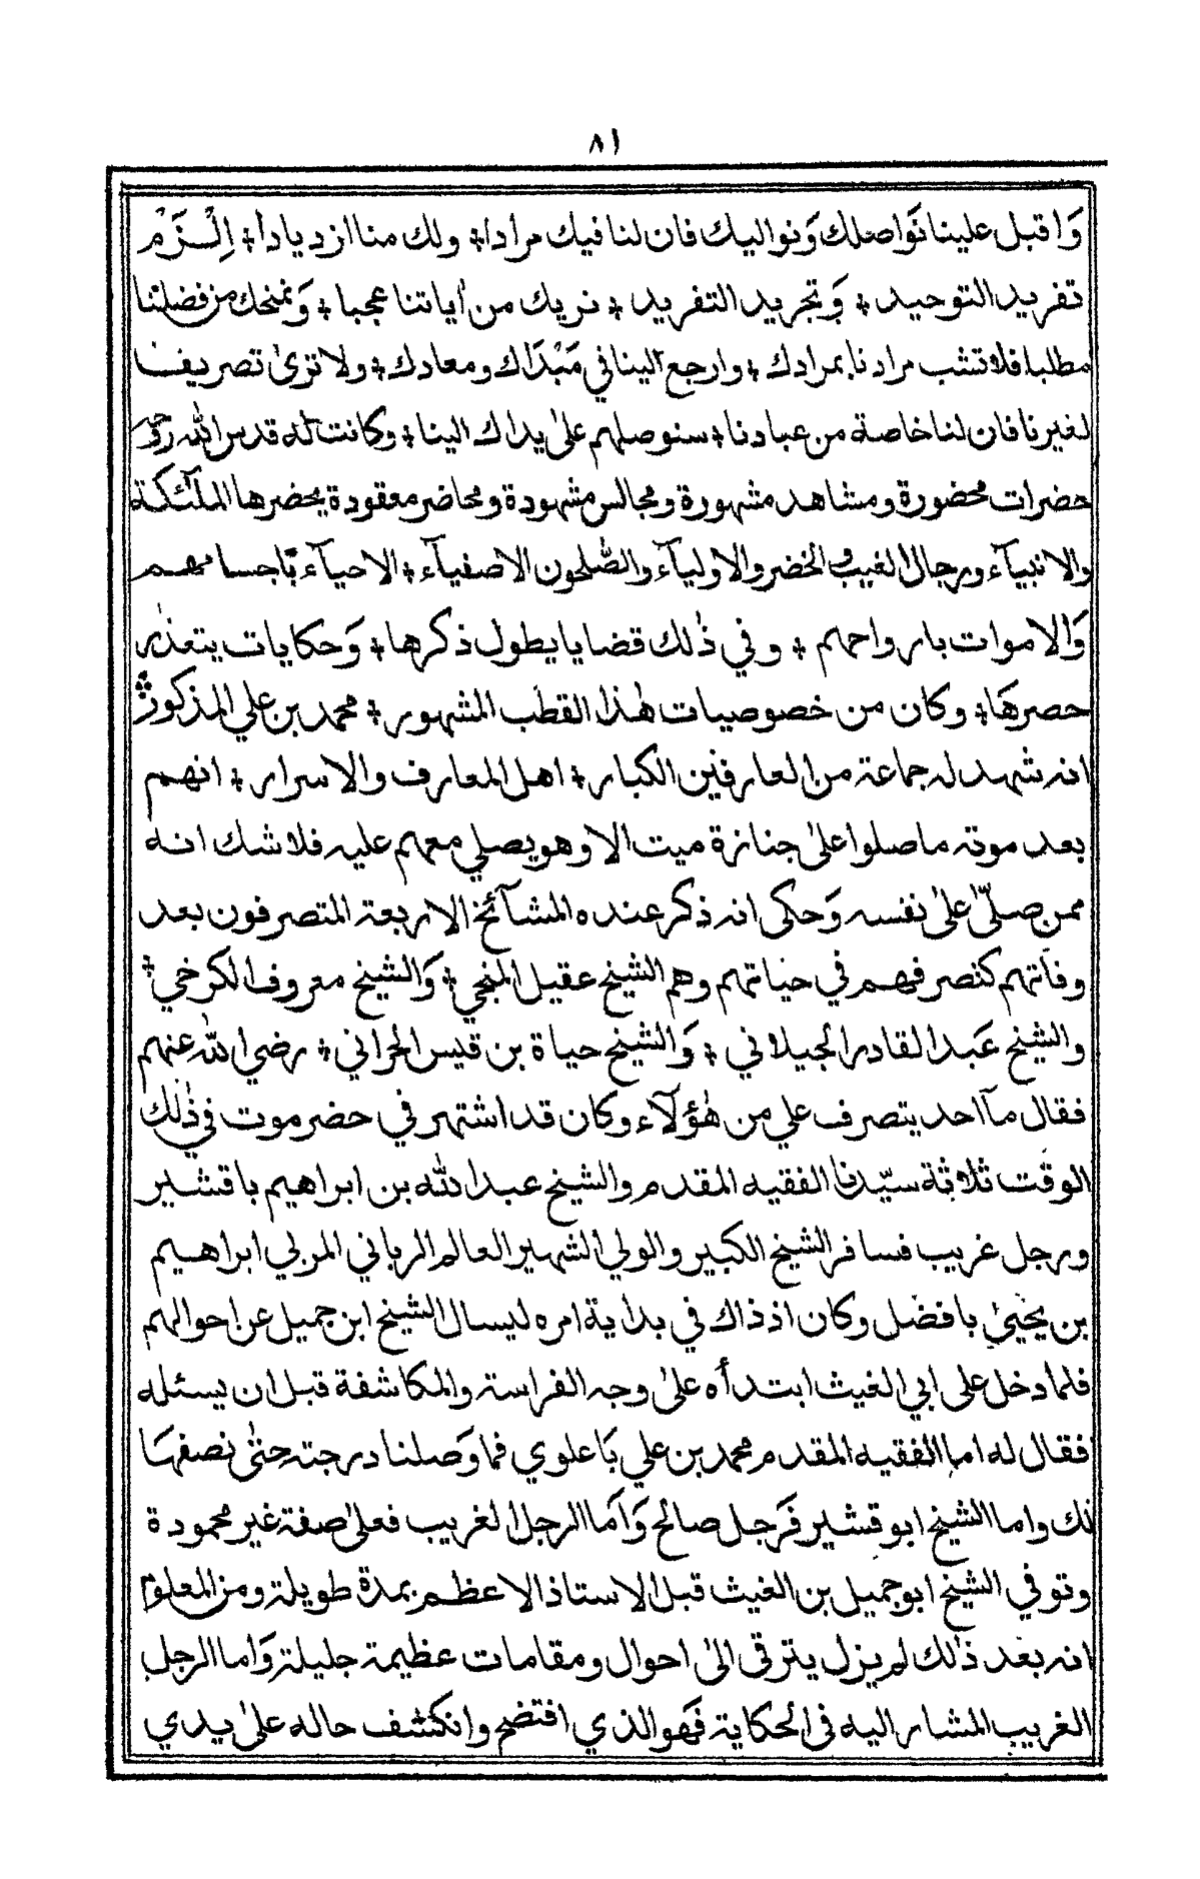 ٨١
وَاقبل علينا نَوَاصلك وَنواليك فان لنا فيك مرادا؛ ولك منا ازديادا؛ اِلْـزَمْ
تفريد التوحيد ؛ وَتجريد التفريد ؛ نريك من أياتنا عجبا ؛ وَنمنحك من فضلنا
مطلبا فلا تشب مرادنا بمرادك ؛ وارجع الينا في مَبْدَاك ومعادك ؛ ولا ترىٰ تصريف
لغيرنا فان لنا خاصة من عبادنا ؛ سنوصلهم علىٰ يداك الينا ؛ وكانت له قدس الله روحه
حضرات محضورة ومشاهد مشهورة ومجالس مشهودة ومحاضر معقودة يحضرها الملٰٓئكة
والانبيآء ورجال الغيب والخضر والاوليآء والصّٰلحون الاصفيآء ؛ الاحيآء باجسامهم
وَالاموات بارواحهم ؛ وفي ذٰلك قضايا يطول ذكرها ؛ وَحكايات يتعذر
حصرهَا ؛ وكان من خصوصيات هٰذا القطب المشهور ؛ محمد بن علي المذكور
انه شهد له جماعة من العارفين الكبار ؛ اهل المعارف والاسرار ؛ انهم
بعد موته ما صلوا علىٰ جنازة ميت الا وهو يصلي معهم عليه فلا شك انه
ممن صلّىٰ علىٰ نفسه وَحكى انه ذكر عنده المشآئخ الاربعة المتصرفون بعد
وفاتهم كتصرفهم في حياتهم وهم الشيخ عقيل المنبجي ؛ وَالشيخ معروف الكرخي ؛
والشيخ عَبد القادر الجيلاني ؛ وَالشيخ حياة بن قيس الحراني ؛ رضي الله عنهم
فقال مآ احد يتصرف علي من هٰؤلآء وكان قد اشتهر في حضرموت في ذٰلك
الوقت ثلاثة سيّدنا الفقيه المقدم والشيخ عبد الله بن ابراهيم باقشير
ورجل غريب فسافر الشيخ الكبير والولي الشهير العالم الرباني المربي ابراهيم
بن يحيىٰ بافضل وكان اذذاك في بداية امره ليسال الشيخ ابن جميل عن احوالهم
فلما دخل على ابي الغيث ابتدأه علىٰ وجه الفراسة والمكاشفة قبل ان يسئله
فقال له اما الفقيه المقدم محمد بن علي بَا علوي فما وَصلنا درجته حتىٰ نصفهَا
لك واما الشيخ ابو قشير فَرجل صالح وَاَما الرجل الغريب فعلىٰ صفة غير محمودة
وتوفي الشيخ ابو جميل بن الغيث قبل الاستاذ الاعظم بمدة طويلة ومن المعلوم
انه بعد ذٰلك لم يزل يترقى الىٰ احوال ومقامات عظيمة جليلة وَاما الرجل
الغريب المشار اليه في الحكاية فَهو الذي افتضح وانكشف حاله علىٰ يدي